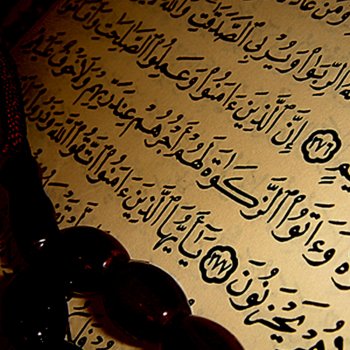 وَمَنْ عَادَ
ٱلرِّبَوٰا۟ وَيُرْبِى ٱلصَّدَقَـٰتِ وَٱللَّهُ
٢٧٦ إِنَّ ٱلَّذِينَ ءَامَنُوا۟ وَعَمِلُوا۟ ٱلصَّـٰلِحَـٰتِ وَأَقَامُوا۟
وَءَاتَوُا۟ ٱلزَّكَوٰةَ لَهُمْ أَجْرُهُمْ عِندَ رَبِّهِمْ وَلَا خَوْفٌ
يَحْزَنُونَ ٢٧٧ يَـٰٓأَيُّهَا ٱلَّذِينَ ءَامَنُوا۟ ٱتَّقُوا۟ ٱللَّهَ وَذَرُوا۟